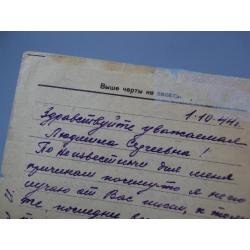 Выше черты не
1-10-44г.
Здравствуйте уважаемая
Людмила Сергеевна!
По неизвестным для меня
причинам почему то я не по
лучаю от Вас писем, к том
последнее